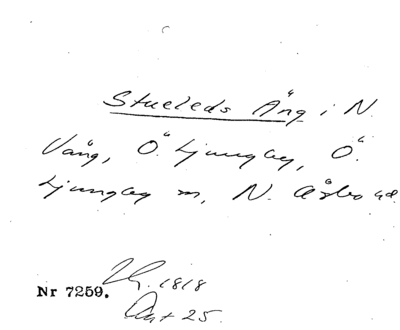 Stueleds Äng i N.
Vång, Ö. Ljungby, Ö.
Ljungby sn, N. Åsbo hd.
Nr 7259. 1818
Akt 25.